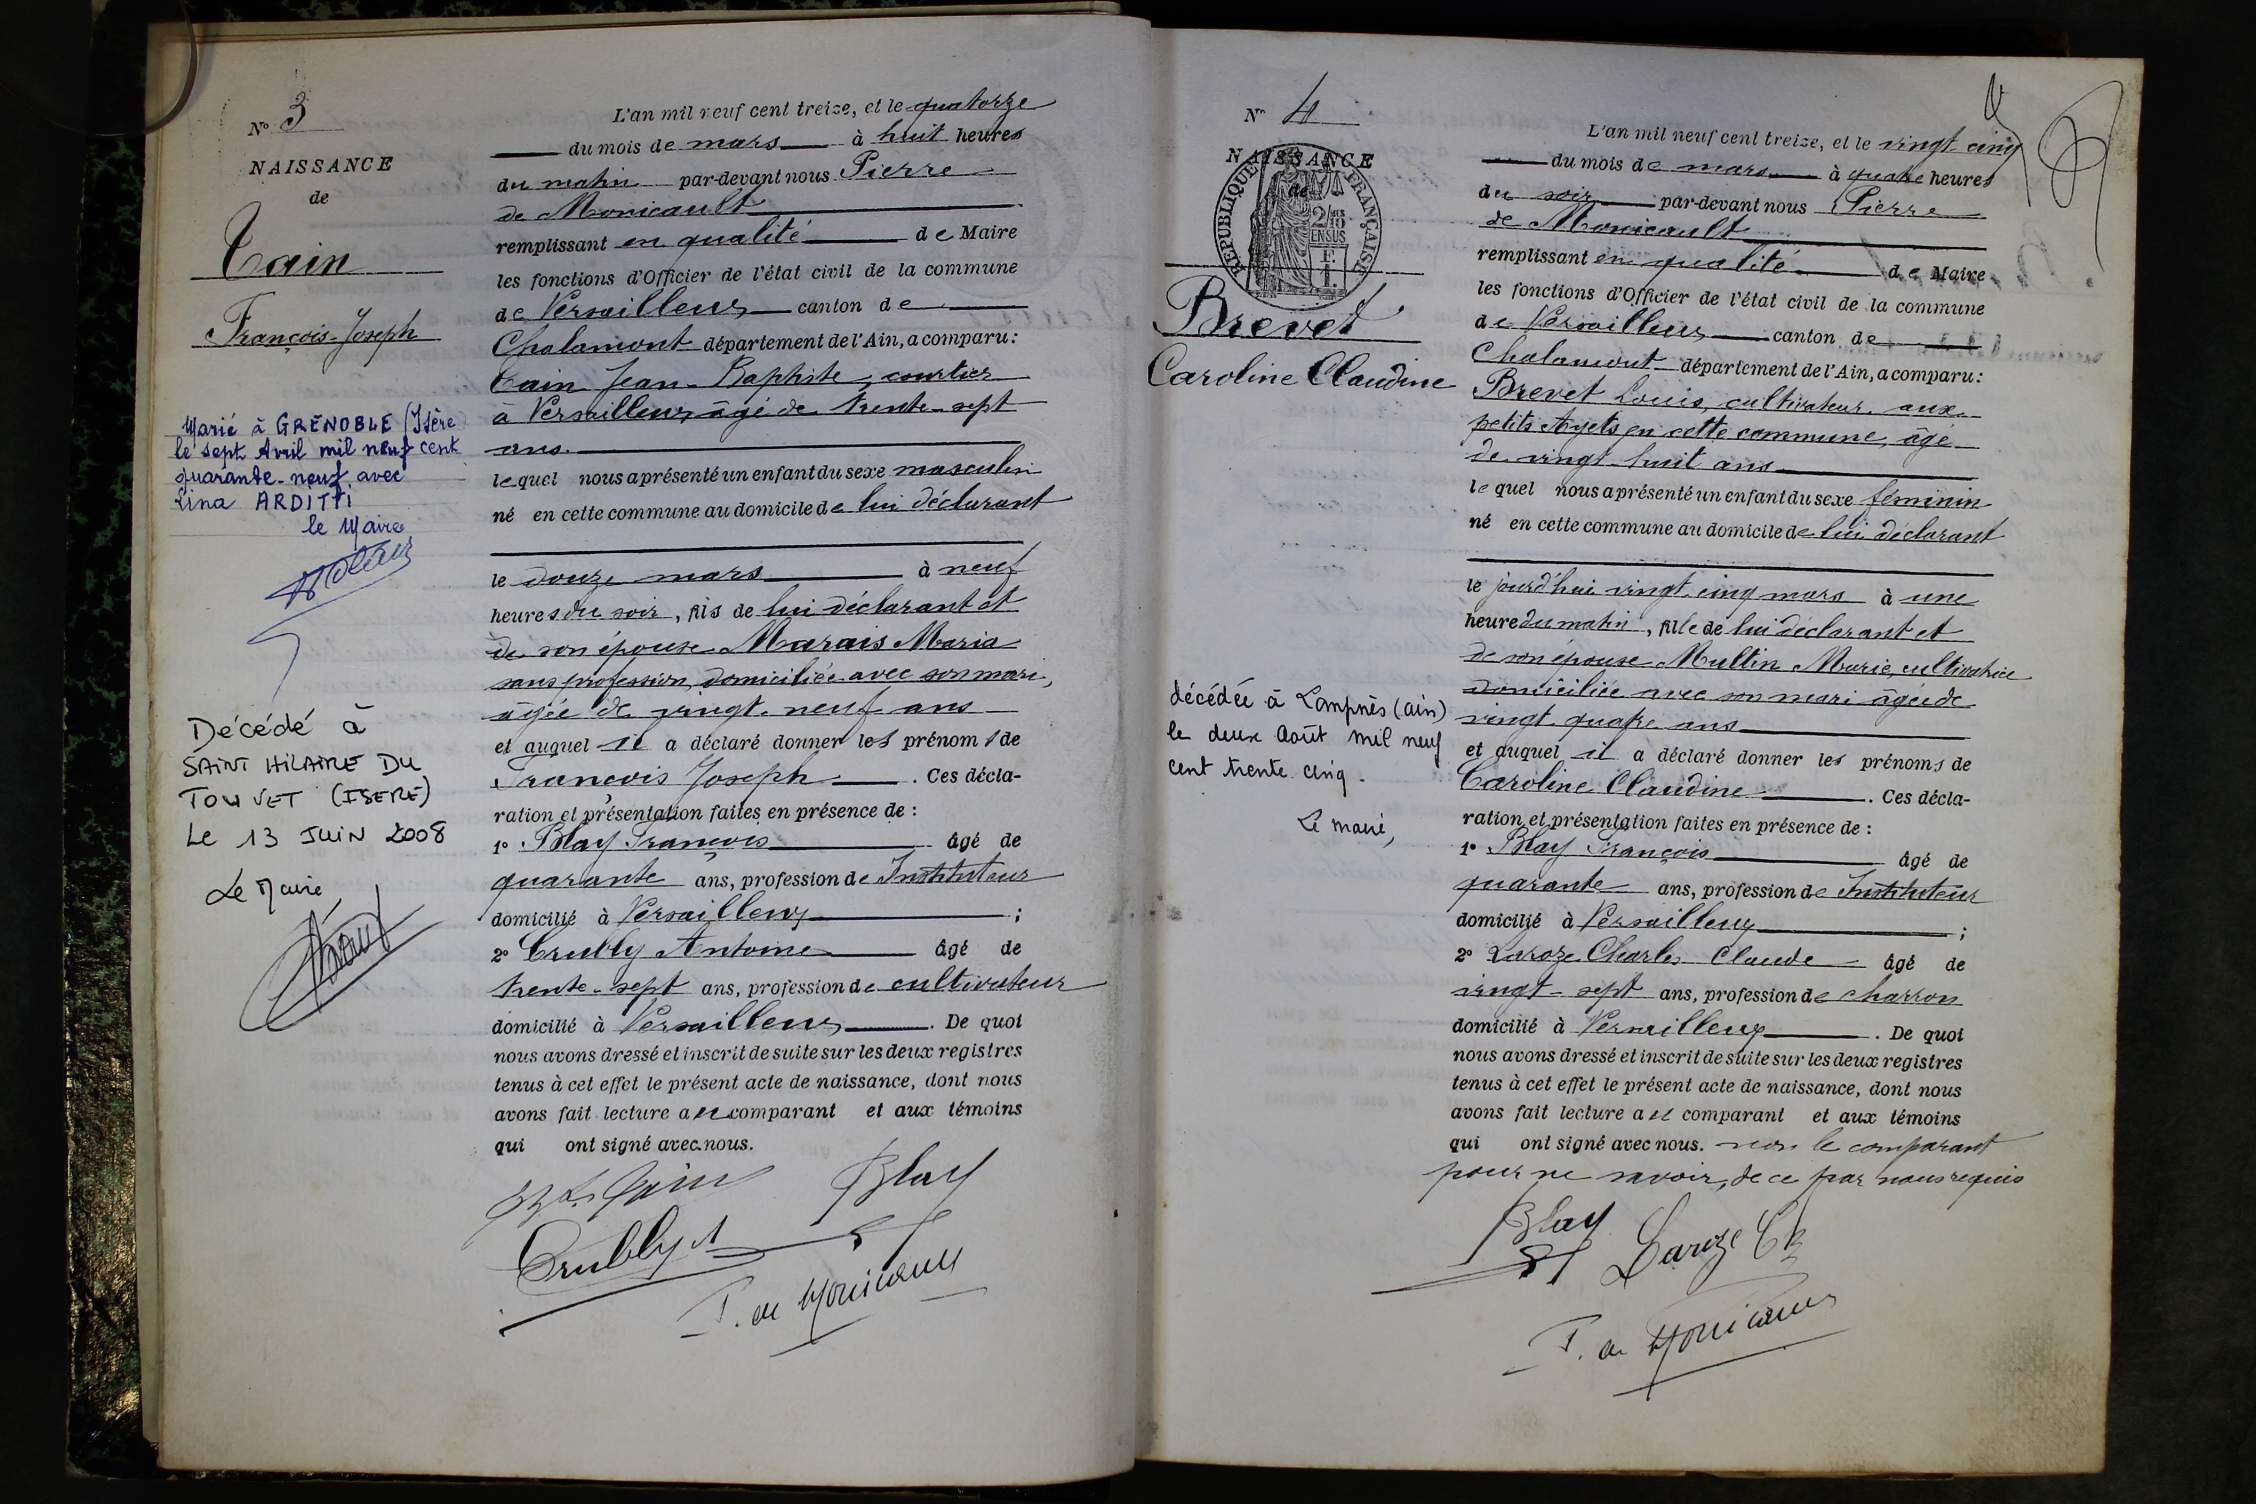 N° 3
NAISSANCE
de
Cain
François-Joseph
Marié à GRENOBLE (Isère)
le sept Avril mil neuf cent
quarante-neuf avec
Lina ARDITTI
le Maire
Décédé à
SAINT HILAIRE DU
TOUVET (ISERE)
Le 13 JUIN 2008
Le Maire,
L'an mil neuf cent treize, et le quatorze
du mois de mars à huit heures
du matin par-devant nous Pierre
de Monicault
remplissant en qualité de Maire
les fonctions d'Officier de l'état civil de la commune
de Versailleux canton de
Chalamont département de l'Ain, a comparu:
Cain Jean-Baptiste, courtier
à Versailleux, âgé de trente-sept
ans.
lequel nous a présenté un enfant du sexe masculin
né en cette commune au domicile de lui déclarant
le douze mars à neuf
heures du soir, fils de lui déclarant et
de son épouse Marais Maria
sans profession, domiciliée avec son mari,
âgée de vingt-neuf ans
et auquel il a déclaré donner les prénoms de
François Joseph. Ces décla-
ration et présentation faites en présence de :
1° Blay François âgé de
quarante ans, profession de Instituteur
domicilié à Versailleux ;
2° Crubly Antoine âgé de
trente-sept ans, profession de cultivateur
domicilié à Versailleux. De quoi
nous avons dressé et inscrit de suite sur les deux registres
tenus à cet effet le présent acte de naissance, dont nous
avons fait lecture au comparant et aux témoins
qui ont signé avec nous.
Cain Blay
Crubly A
P. de Monicault
N° 4
NAISSANCE
de
RÉPUBLIQUE FRANÇAISE
2/10
EN SUS
F.
1.
Brevet
Caroline Claudine
décédée à Lompnès (ain)
le deux Août mil neuf
cent trente cinq.
Le maire,
L'an mil neuf cent treize, et le vingt cinq
du mois de mars à quatre heures
du soir par-devant nous Pierre
de Monicault
remplissant en qualité de Maire
les fonctions d'Officier de l'état civil de la commune
de Versailleux canton de
Chalamont département de l'Ain, a comparu:
Brevet Louis, cultivateur aux
petits Ayets en cette commune, âgé
de vingt-huit ans
lequel nous a présenté un enfant du sexe féminin
né en cette commune au domicile de lui déclarant
le jourd'hui vingt cinq mars à une
heure du matin, fille de lui déclarant et
de son épouse Multin Marie, cultivatrice
domiciliée avec son mari âgée de
vingt-quatre ans
et auquel il a déclaré donner les prénoms de
Caroline Claudine. Ces décla-
ration et présentation faites en présence de :
1° Blay François âgé de
quarante ans, profession de Instituteur
domicilié à Versailleux ;
2° Laroze Charles Claude âgé de
vingt-sept ans, profession de charron
domicilié à Versailleux. De quoi
nous avons dressé et inscrit de suite sur les deux registres
tenus à cet effet le présent acte de naissance, dont nous
avons fait lecture au comparant et aux témoins
qui ont signé avec nous. non le comparant
pour ne savoir, de ce par nous requis
Blay Laroze Ch
P. de Monicault